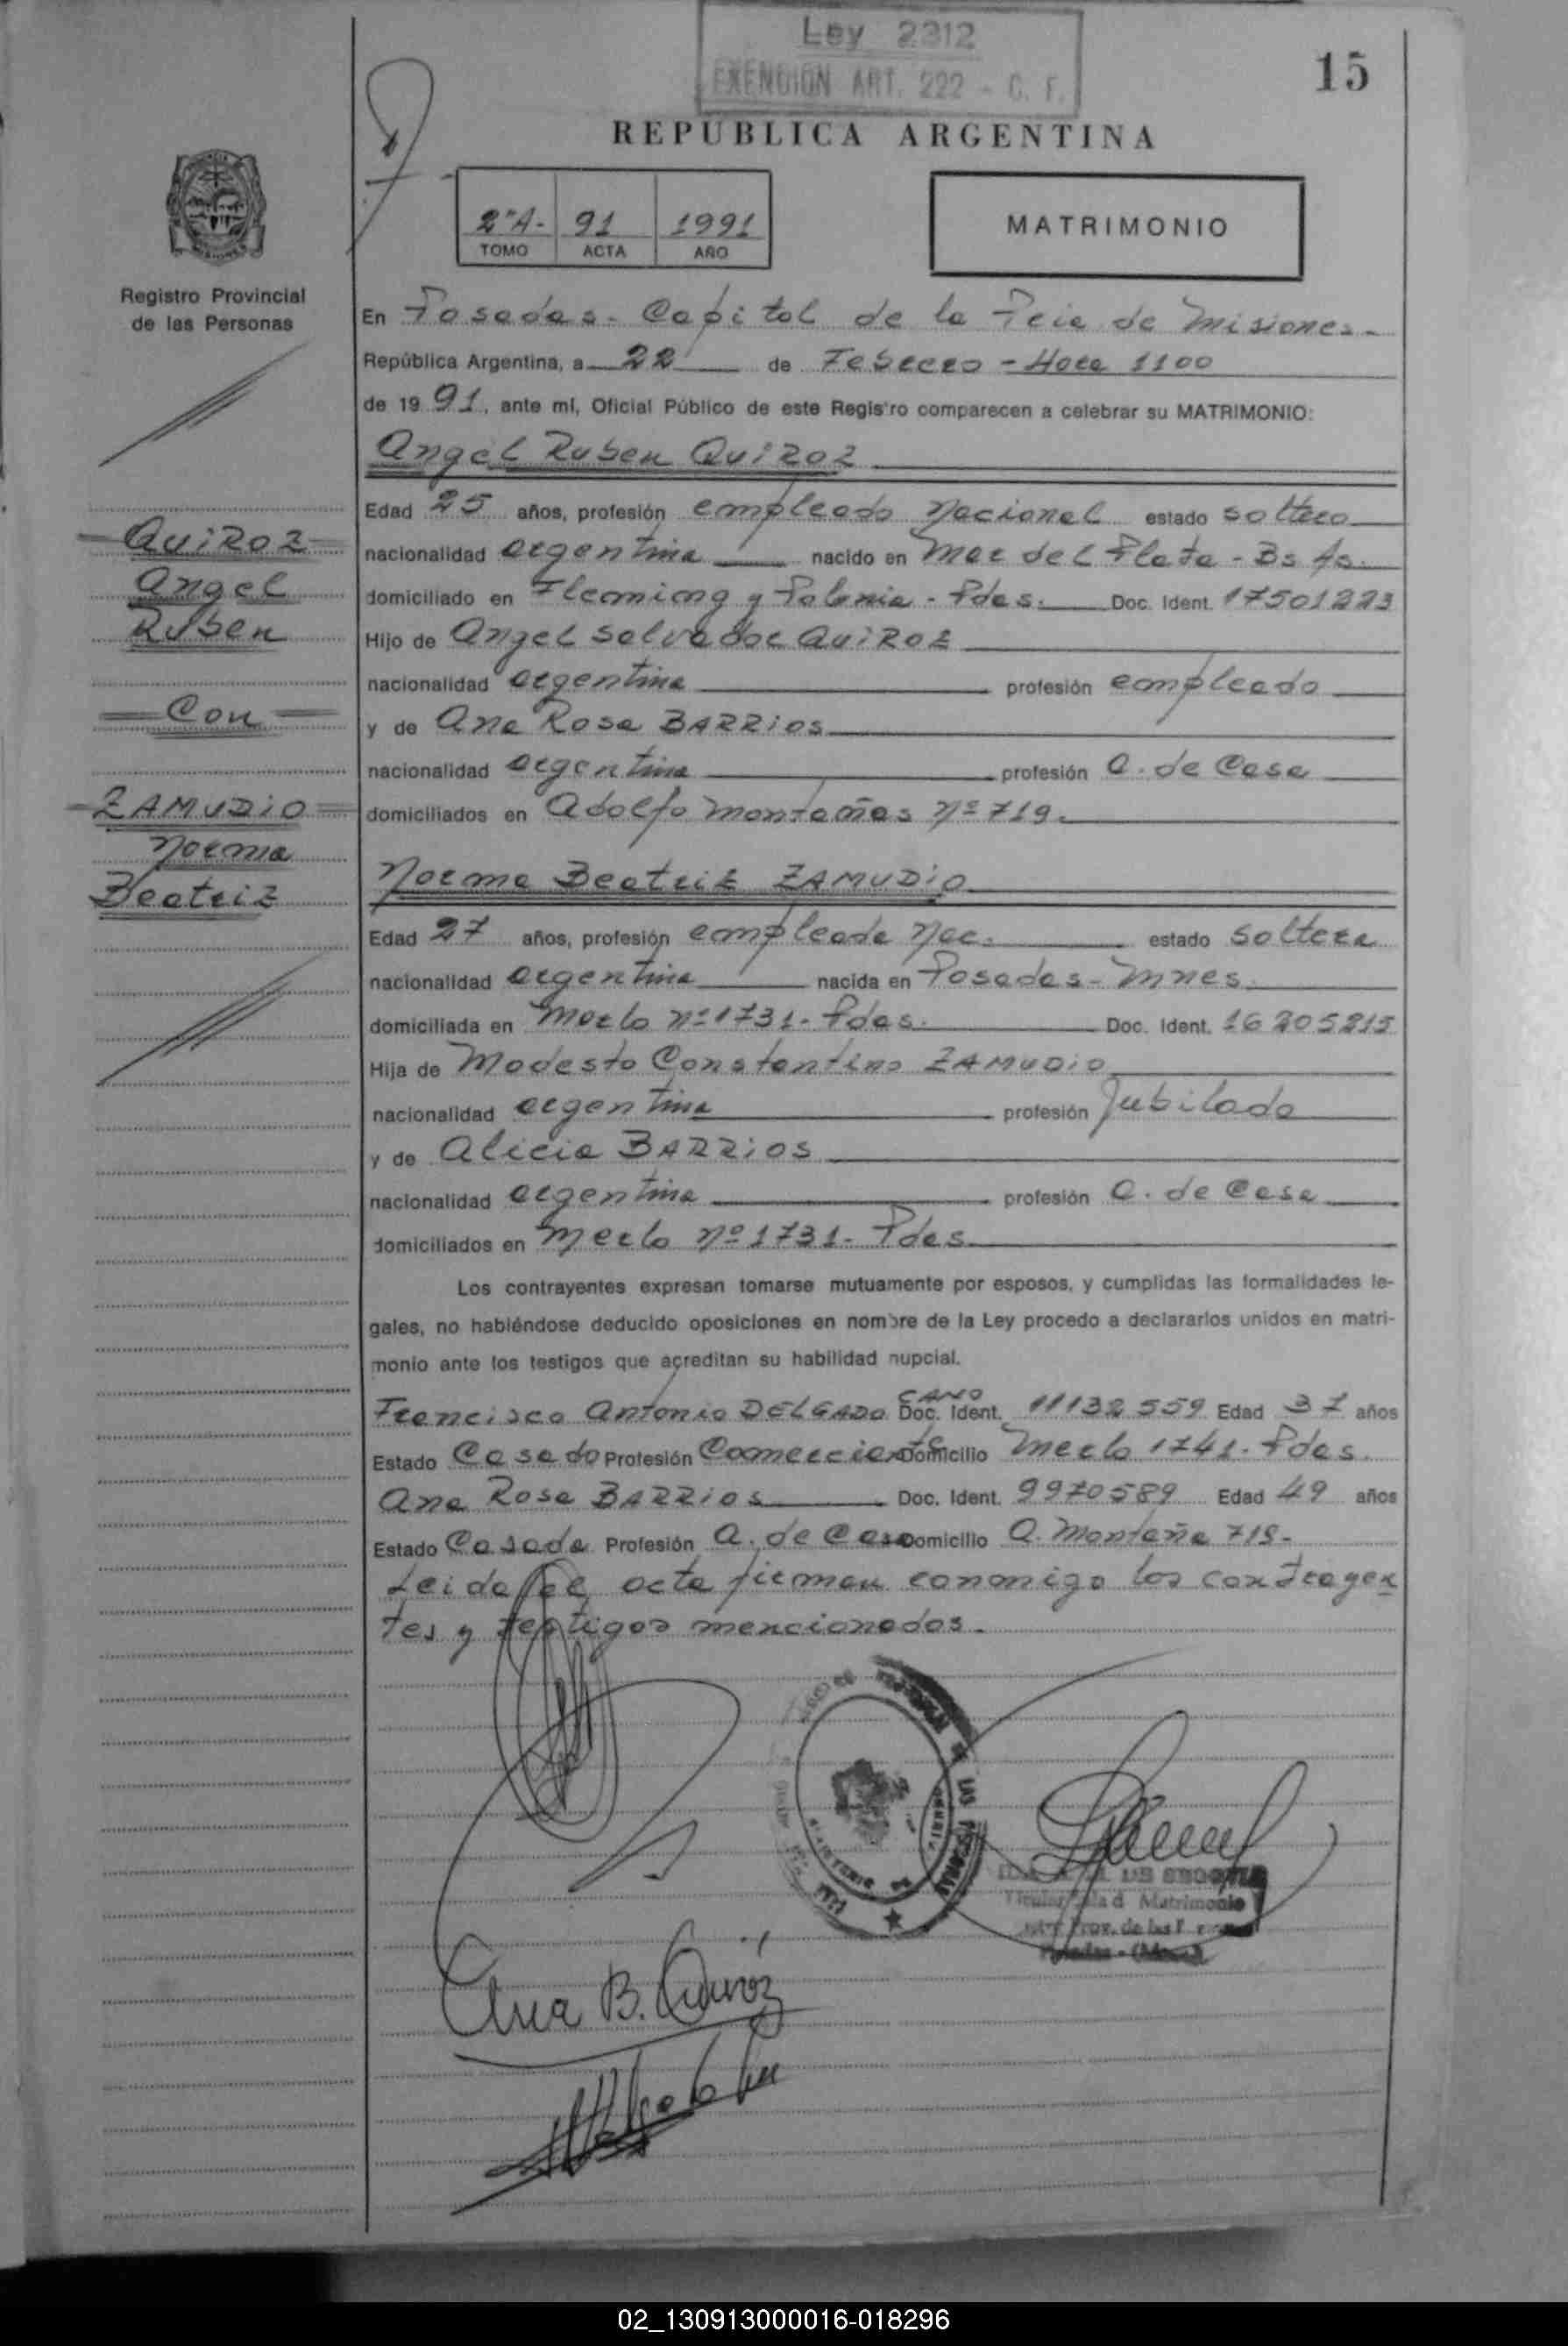 Ley 2312
EXENCION ART. 222 - C. F.
15
REPUBLICA ARGENTINA
2ºA- 91 1991
TOMO ACTA AÑO
MATRIMONIO
Registro Provincial
de las Personas
En Posadas - Capital de la Pcia de Misiones -
República Argentina, a 22 de Febrero - Hora 1100
de 19 91, ante mí, Oficial Público de este Registro comparecen a celebrar su MATRIMONIO:
Angel Ruben QUIROZ
Edad 25 años, profesión empleado Nacional estado soltero
nacionalidad argentina nacido en Mar del Plata - Bs As.
domiciliado en Flemiong y Polonia - Pdas. Doc. Ident. 17501223
Hijo de Angel Salvador QUIROZ
nacionalidad argentina profesión empleado
y de Ana Rosa BARRIOS
nacionalidad argentina profesión A. de Casa
domiciliados en Adolfo Montañas Nº 719.
Norma Beatriz ZAMUDIO
Edad 27 años, profesión empleada Nac. estado soltera
nacionalidad argentina nacida en Posadas - Mnes.
domiciliada en Merlo nº 1731 - Pdas. Doc. Ident. 16205215
Hija de Modesto Constantino ZAMUDIO
nacionalidad argentina profesión Jubilado
y de Alicia BARRIOS
nacionalidad argentina profesión A. de Casa
domiciliados en Merlo Nº 1731 - Pdas
Los contrayentes expresan tomarse mutuamente por esposos, y cumplidas las formalidades le-
gales, no habiéndose deducido oposiciones en nombre de la Ley procedo a declararlos unidos en matri-
monio ante los testigos que acreditan su habilidad nupcial.
Francisco Antonio DELGADO CANO Doc. Ident. 11132559 Edad 37 años
Estado Casado Profesión Comerciante Domicilio Merlo 1741 - Pdas.
Ana Rosa BARRIOS Doc. Ident. 9970589 Edad 49 años
Estado Casada Profesión A. de Casa Domicilio A. Montaña 719 -
Leida el acta firman conmigo los contrayen
tes y testigos mencionados.
QUIROZ
Angel
Ruben
Con
ZAMUDIO
Norma
Beatriz
Ana B. Quiróz
Titular Sala d Matrimonio
Prov. de las
02_130913000016-018296